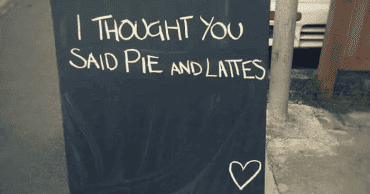 I THOUGHT YOU
SAID PIE AND LATTES